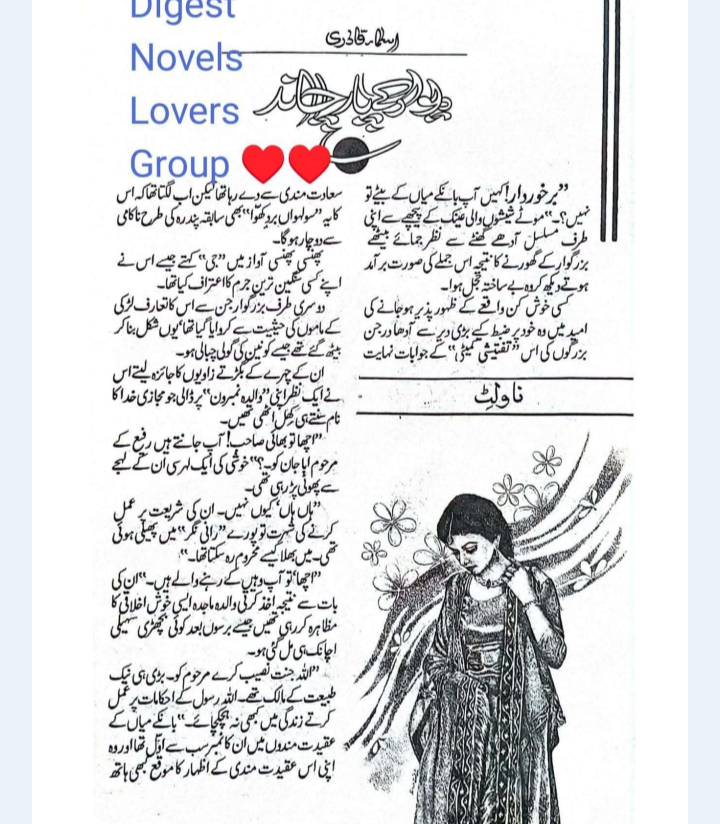 Digest
Novels
Lovers
Group ❤❤
اسماء قادری
دیوار کے پار چاند
”برخوردار! کہیں آپ بانکے میاں کے بیٹے تو
نہیں؟“ موٹے شیشوں والی عینک کے پیچھے سے اپنی
طرف مسلسل آدھے گھنٹے سے نظر جمائے بیٹھے
بزرگوار کے گھورنے کا نتیجہ اس جملے کی صورت برآمد
ہوتے دیکھ کر وہ بے ساختہ خجل ہوا۔
کسی خوش کن واقعے کے ظہور پذیر ہو جانے کی
امید میں وہ خود پر ضبط کیے بڑی دیر سے آدھا درجن
بزرگوں کی اس ”تفتیشی کمیٹی“ کے جوابات نہایت
ناولٹ
سعادت مندی سے دے رہا تھا لیکن اب لگتا تھا کہ اس
کا یہ ”سولہواں بر دکھوا“ بھی سابقہ پندرہ کی طرح ناکامی
سے دوچار ہو گا۔
پھنسی پھنسی آواز میں ”جی“ کہتے جیسے اس نے
اپنے کسی سنگین ترین جرم کا اعتراف کیا تھا۔
دوسری طرف بزرگوار جن سے اس کا تعارف لڑکی
کے ماموں کی حیثیت سے کروایا گیا تھا، یوں شکل بنا کر
بیٹھ گئے تھے جیسے کونین کی گولی چبالی ہو۔
ان کے چہرے کے بگڑتے زاویوں کا جائزہ لیتے اس
نے ایک نظر اپنی ”والدہ نمبرون“ پر ڈالی جو مجازی خدا کا
نام سنتے ہی کھل اٹھی تھیں۔
”اچھا تو بھائی صاحب! آپ جانتے ہیں رفیع کے
مرحوم ابا جان کو۔؟“ خوشی کی ایک لہر سی ان کے لہجے
سے پھوٹی پڑ رہی تھی۔
”ہاں ہاں، کیوں نہیں۔ ان کی شریعت پر عمل
کرنے کی شہرت تو پورے ”رانی نگر“ میں پھیلی ہوئی
تھی۔ میں بھلا کیسے محروم رہ سکتا تھا۔“
”اچھا، تو آپ وہیں کے رہنے والے ہیں۔“ ان کی
بات سے نتیجہ اخذ کرتی والدہ ماجدہ ایسی خوش اخلاقی کا
مظاہرہ کر رہی تھیں جیسے برسوں بعد کوئی بچھڑی سہیلی
اچانک ہی مل گئی ہو۔
”اللہ جنت نصیب کرے مرحوم کو۔ بڑی ہی نیک
طبیعت کے مالک تھے۔ اللہ رسول کے احکامات پر عمل
کرتے زندگی میں کبھی نہ ہچکچائے۔“ بانکے میاں کے
عقیدت مندوں میں ان کا نمبر سب سے اول تھا اور وہ
اپنی اس عقیدت مندی کے اظہار کا موقع کبھی ہاتھ